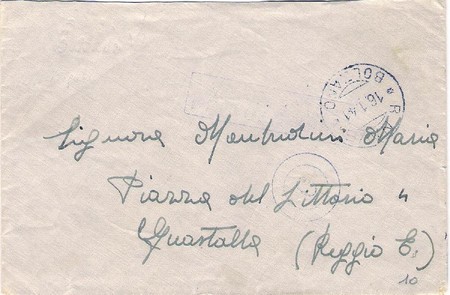 BOLZANO
16.1.41
Signora Mantovani Maria
Piazza del Littorio 4
Guastalla (Reggio E.)
10